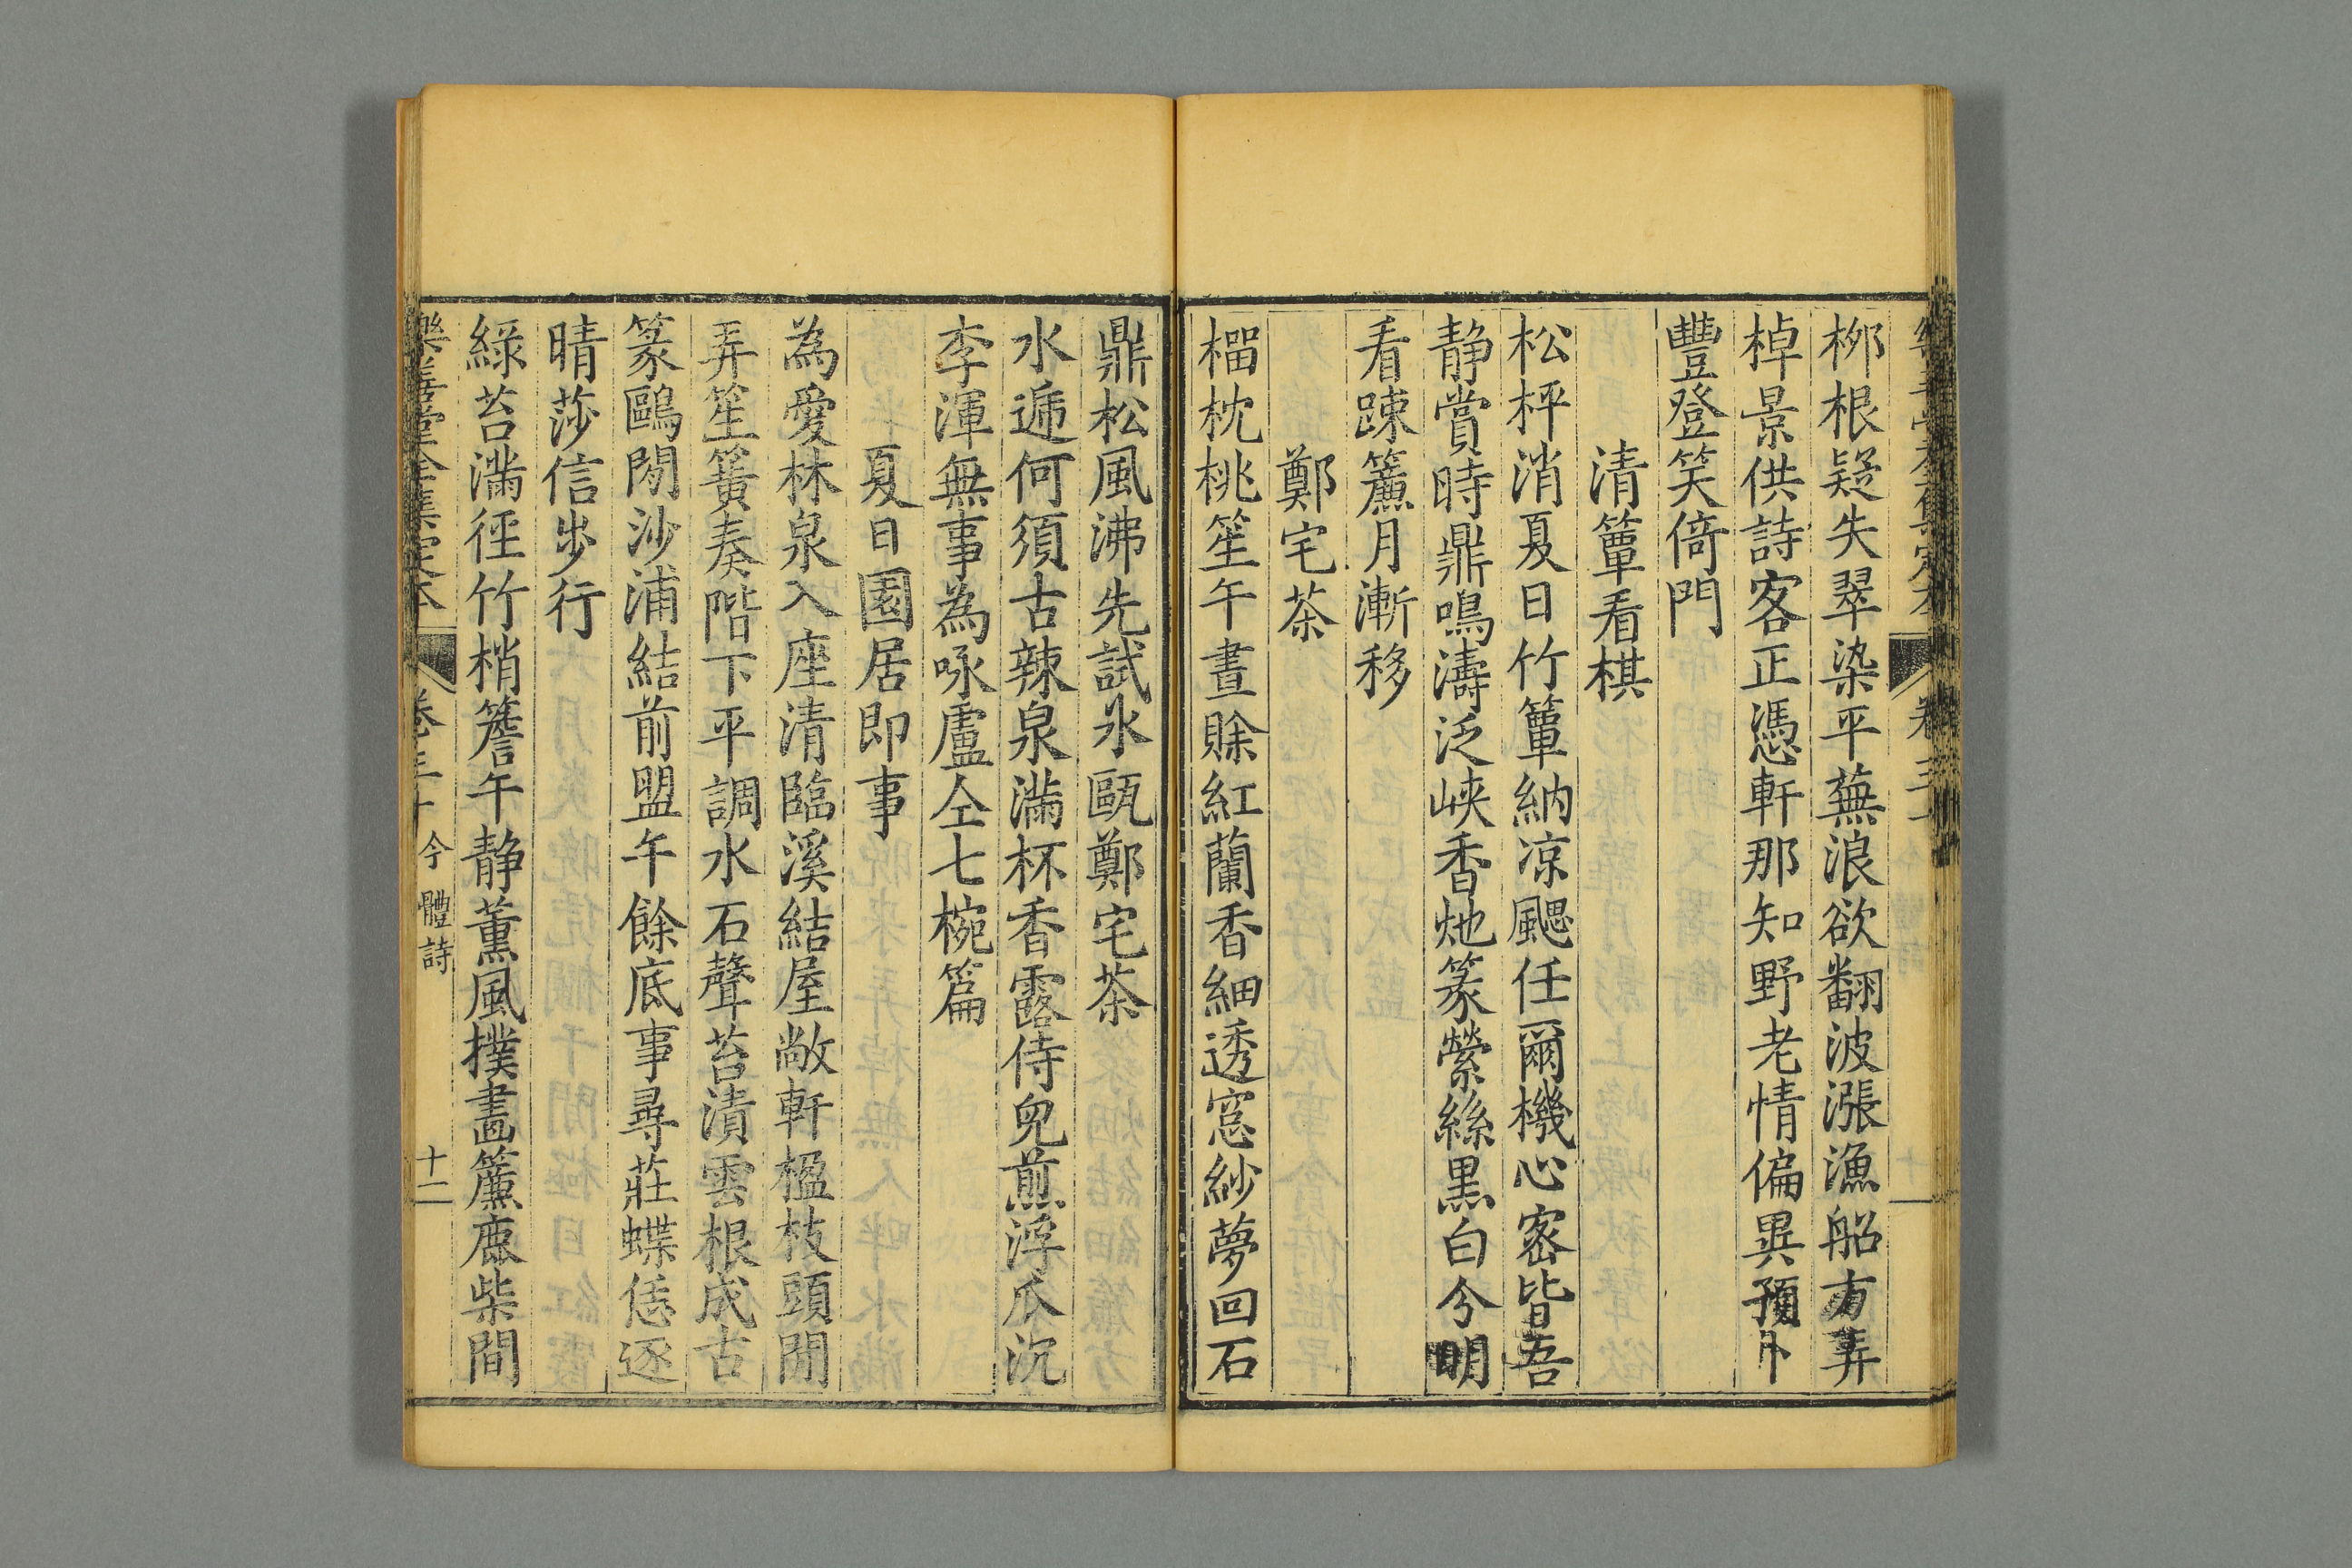 柳根疑失翠染平蕪浪欲翻波漲漁船方弄
棹景供詩客正憑軒那知野老情偏異預卜
豐登笑倚門
清簟看棋
松枰消夏日竹簟納凉颸任爾機心密皆吾
静賞時鼎鳴濤泛峽香灺篆縈絲黒白今明
看踈簾月漸移
鄭宅茶
榴枕桃笙午晝賖紅蘭香細透窓紗夢回石
鼎松風沸先試氷甌鄭宅茶
水逓何須古辣泉滿杯香露侍兒煎浮瓜沉
李渾無事為咏盧仝七椀篇
夏日園居即事
為愛林泉入座清臨溪結屋敞軒楹枝頭閒
弄笙簧奏階下平調水石聲苔漬雲根成古
篆鷗閒沙浦結前盟午餘底事尋莊蝶恁逐
晴莎信步行
綠苔滿徑竹梢簷午静薰風撲畫簾鹿柴間
樂善堂全集定本 卷二十 今體詩 十二